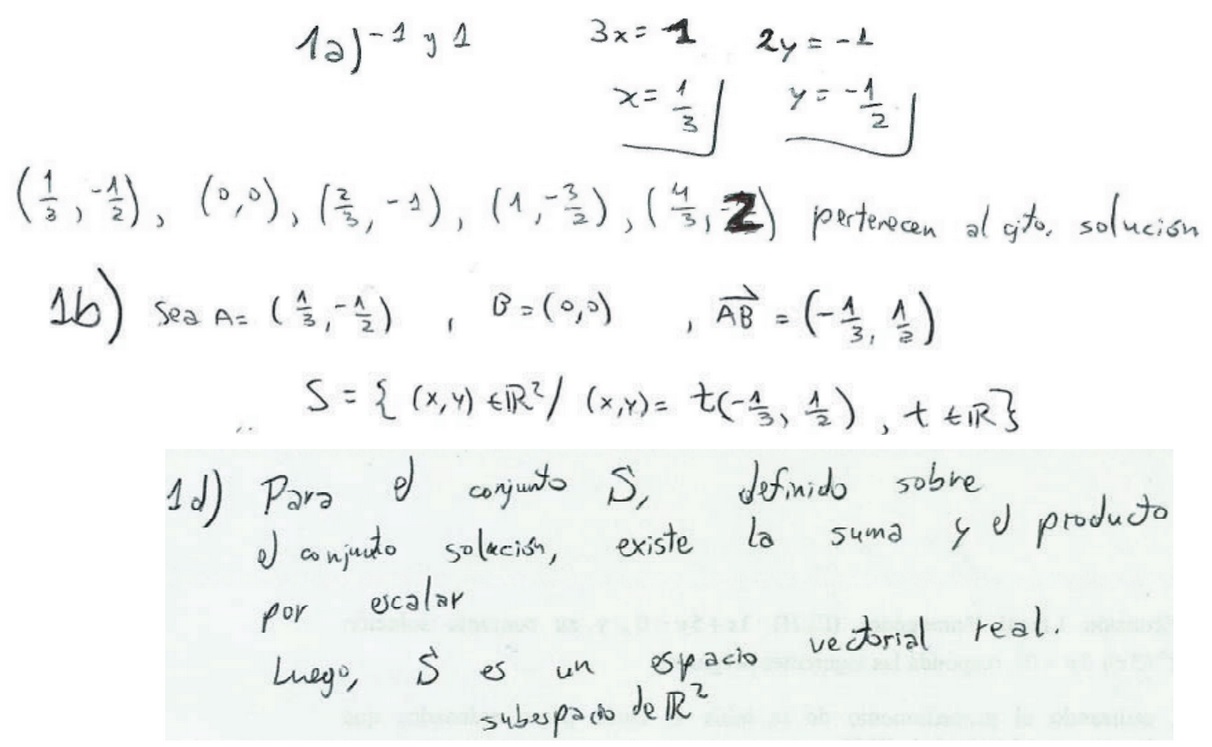 1a) -1 y 1 3x = 1 2y = -1
x = 1/3 y = -1/2
(1/3, -1/2), (0,0), (2/3, -1), (1, -3/2), (4/3, -2) pertenecen al cjto. solución
1b) Sea A = (1/3, -1/2) , B = (0,0) , AB = (-1/3, 1/2)
S = { (x,y) ∈ ℝ² / (x,y) = t(-1/3, 1/2), t ∈ ℝ}
1d) Para el conjunto S, definido sobre
el conjunto solución, existe la suma y el producto
por escalar
Luego, S es un espacio vectorial real.
subespacio de ℝ²